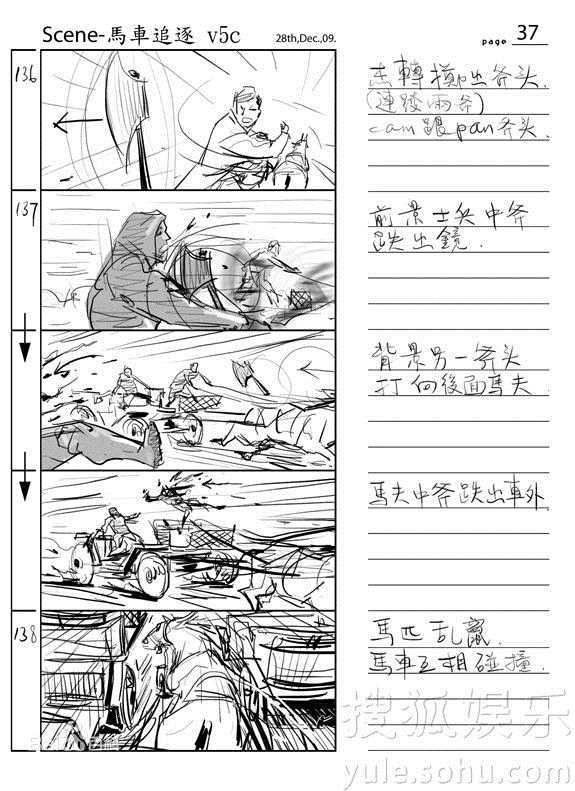 Scene-馬車追逐 v5c
28th,Dec.,09.
page 37
136
轉擲出斧头.
(連踭兩斧)
cam跟pan斧头.
137
前景士兵中斧
跌出鏡.
背景另一斧头
打向後面馬夫.
馬夫中斧跌出車外.
138
馬匹乱竄.
馬車互相碰撞.
搜狐娱乐
yule.sohu.com